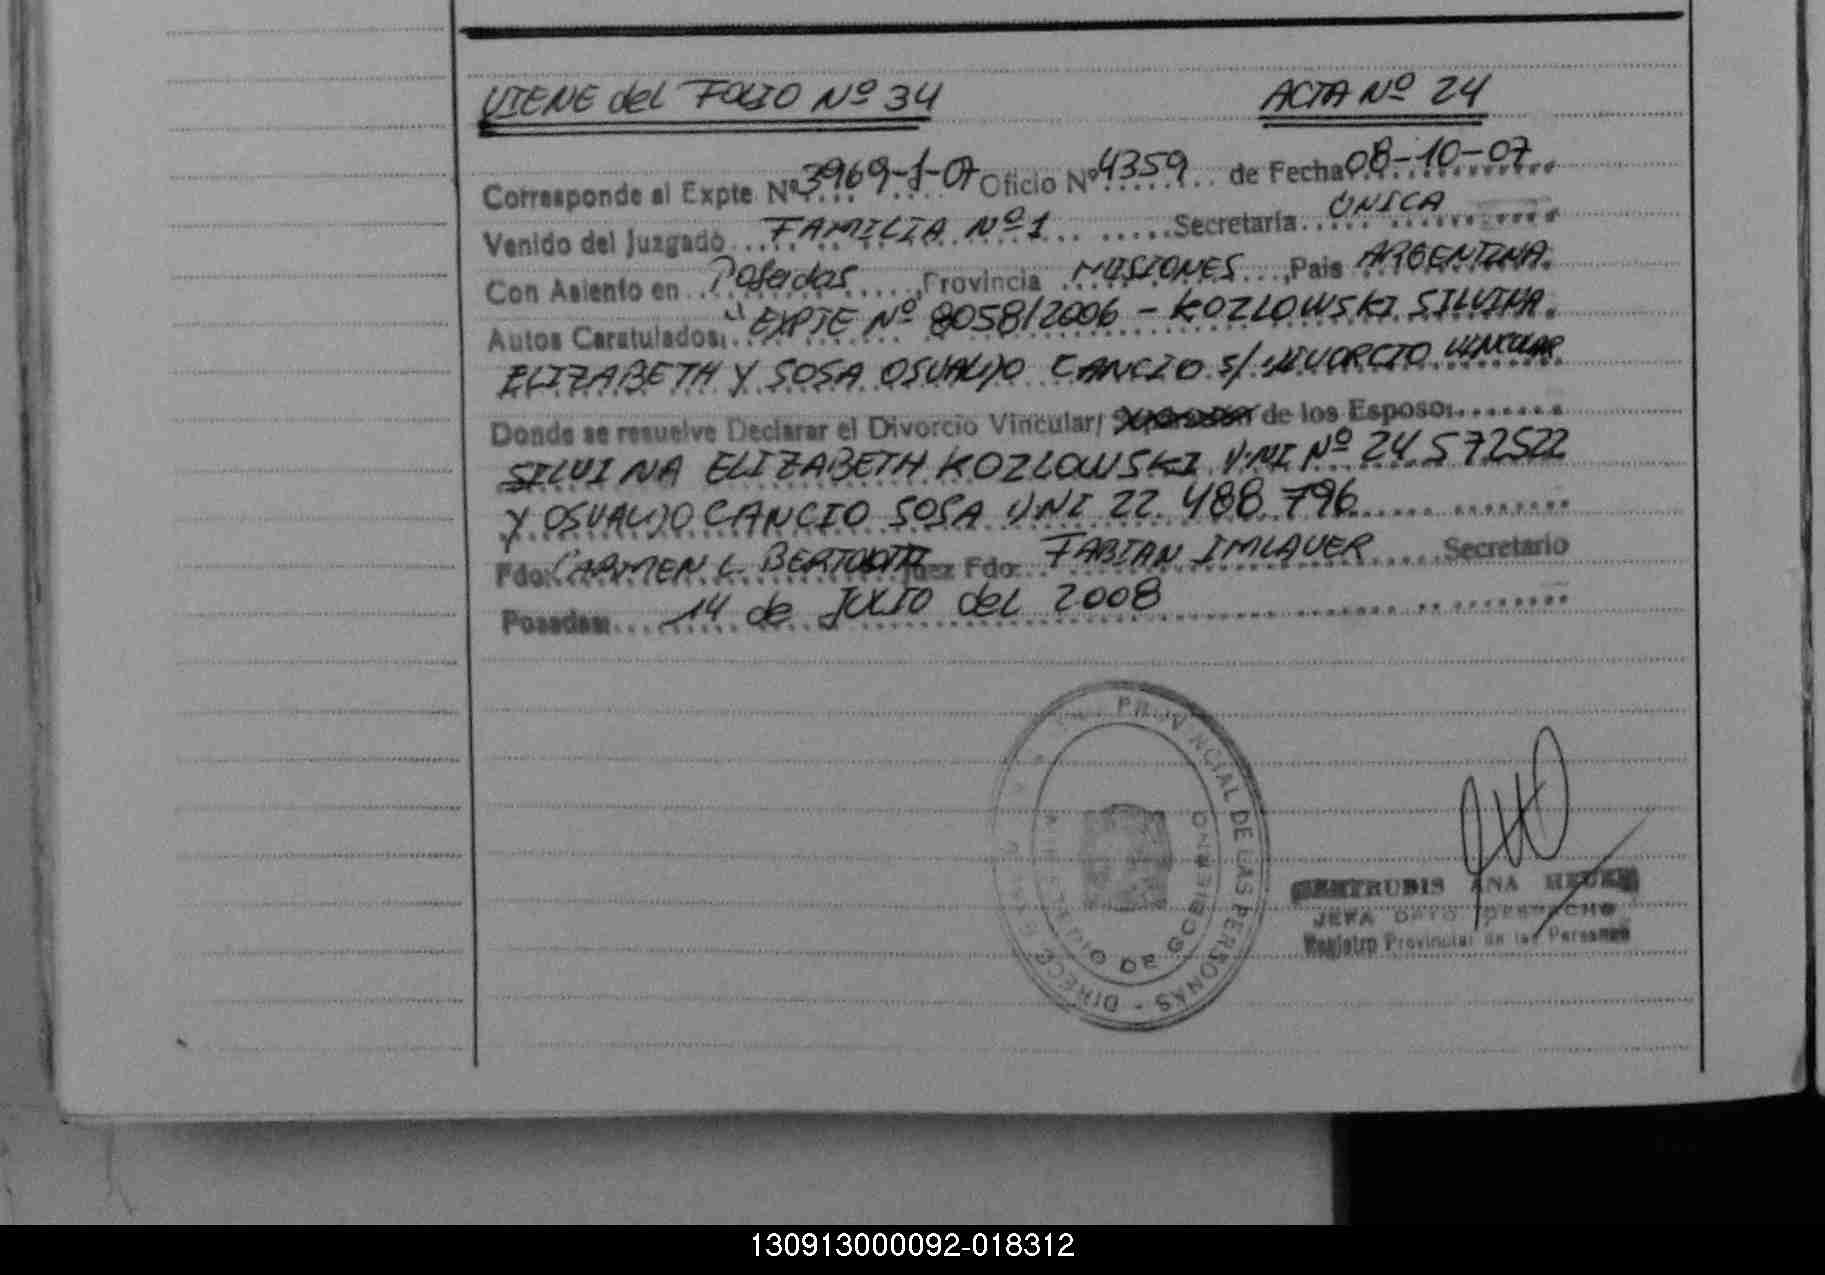 VIENE del FOLIO Nº 34 ACTA Nº 24
Corresponde al Expte Nº 3969-J-07 Oficio Nº 4359 de Fecha 08-10-07
Venido del Juzgado FAMILIA Nº 1 Secretaria UNICA
Con Asiento en Posadas, Provincia MISIONES, Pais ARGENTINA
Autos Caratulados: "EXPTE Nº 8058/2006 - KOZLOWSKI SILVINA
ELIZABETH Y SOSA OSVALDO CANCIO S/ DIVORCIO VINCULAR
Donde se resuelve Declarar el Divorcio Vincular/ de los Esposos:
SILVINA ELIZABETH KOZLOWSKI DNI Nº 24 572522
Y OSVALDO CANCIO SOSA DNI 22.488.796
Fdo: CARMEN L. Juez Fdo: FABIAN IMLAUER Secretario
Posadas: 14 de JULIO del 2008
PROVINCIAL DE LAS PERSONAS - DIRECC
DE GOBIERNO
GERTRUDIS ANA
JEFA DPTO DESPACHO
Registro Provincial de las Personas
130913000092-018312